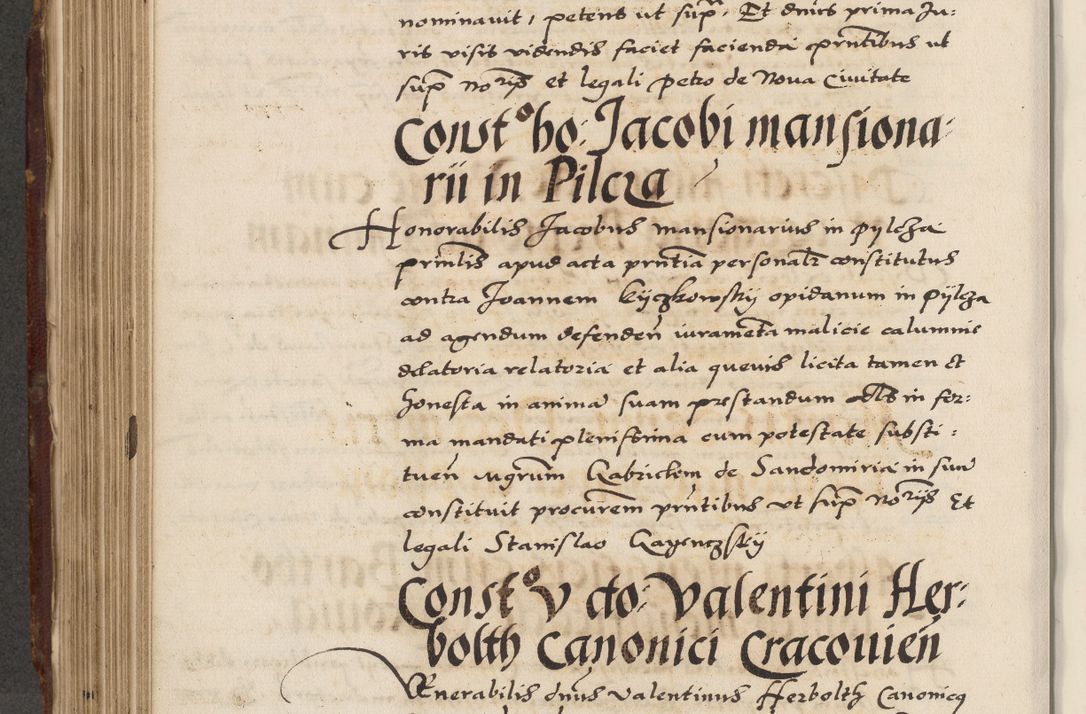 nominavit, petens ut supra. Et dnus prima Ju:
ris visis videndis faciet facienda prntibus ut
sup norijs et legali Petro de Nova Civitate
Const<sup>o</sup> ho: Jacobi mansiona:
rii in Pilcza
Honorabilis Jacobus mansionarius in pylcza
prinlis apud acta prntia personalr constitutus
contra Joannem Kyczkowsky opidanum in Pylcza
ad agendum defenden iuramenta malicie calumnie
delatoria relatoria et alia quevis licita tamen et
honesta in anima suam prestandum als in for:
ma mandati plenissima cum potestate substi:
tuen mgrum Gabrielem de Sandomiria in suum
constituit procurem prntibus ut sup norijs Et
legali Stanislao
Const<sup>o</sup> V cto: Valentini Her:
bolth Canonici Cracovien
Venerabilis dnus Valentinus Herbolth Canonicq